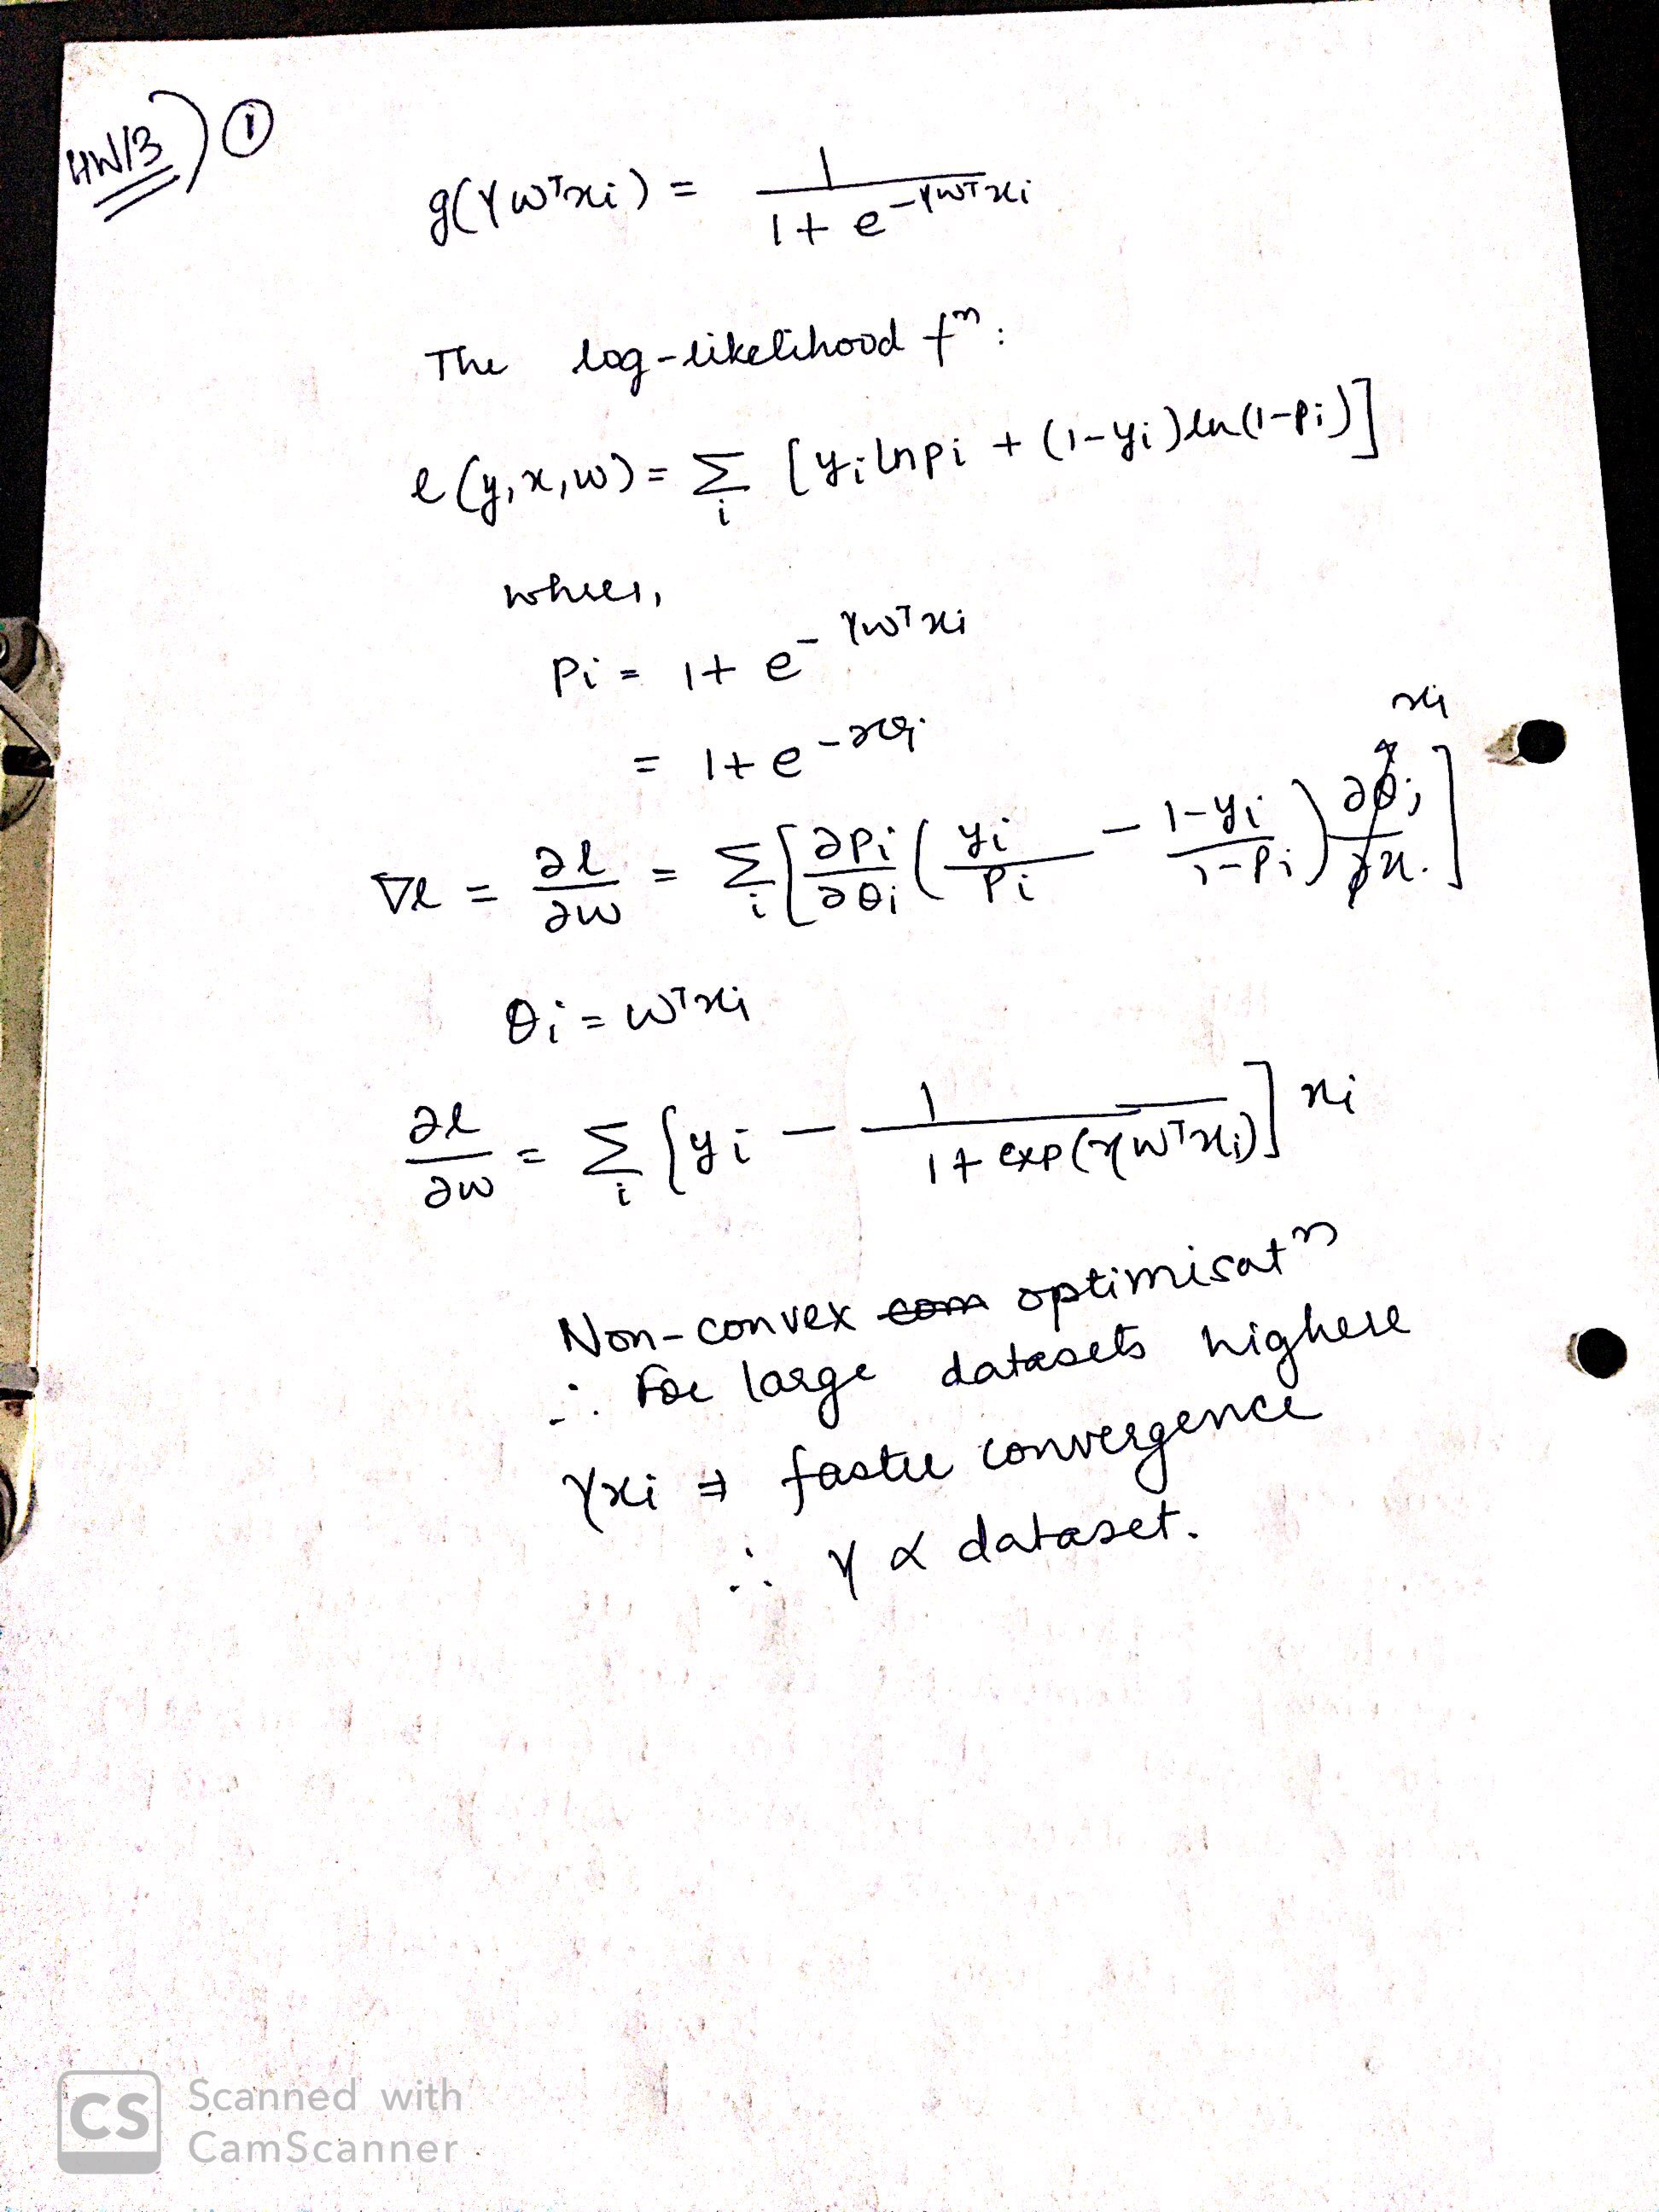 HW13) ①
g(γwᵀxi) = 1 / (1 + e^(-γwᵀxi))
The log-likelihood fⁿ:
l(y,x,w) = Σ_i [yi ln pi + (1-yi) ln(1-pi)]
where,
Pi = 1 + e^(-γwᵀxi)
= 1 + e^-
xi
∇l = ∂l/∂w = Σ_i [∂pi/∂θi (yi/Pi - (1-yi)/(1-Pi)) ∂θi/∂x.]
θi = wᵀxi
∂l/∂w = Σ_i [yi - 1/(1 + exp(γwᵀxi))] xi
Non-convex optimisatⁿ
∴ For large datasets higher
γxi ⇒ faster convergence
∴ γ α dataset.
CS Scanned with
CamScanner